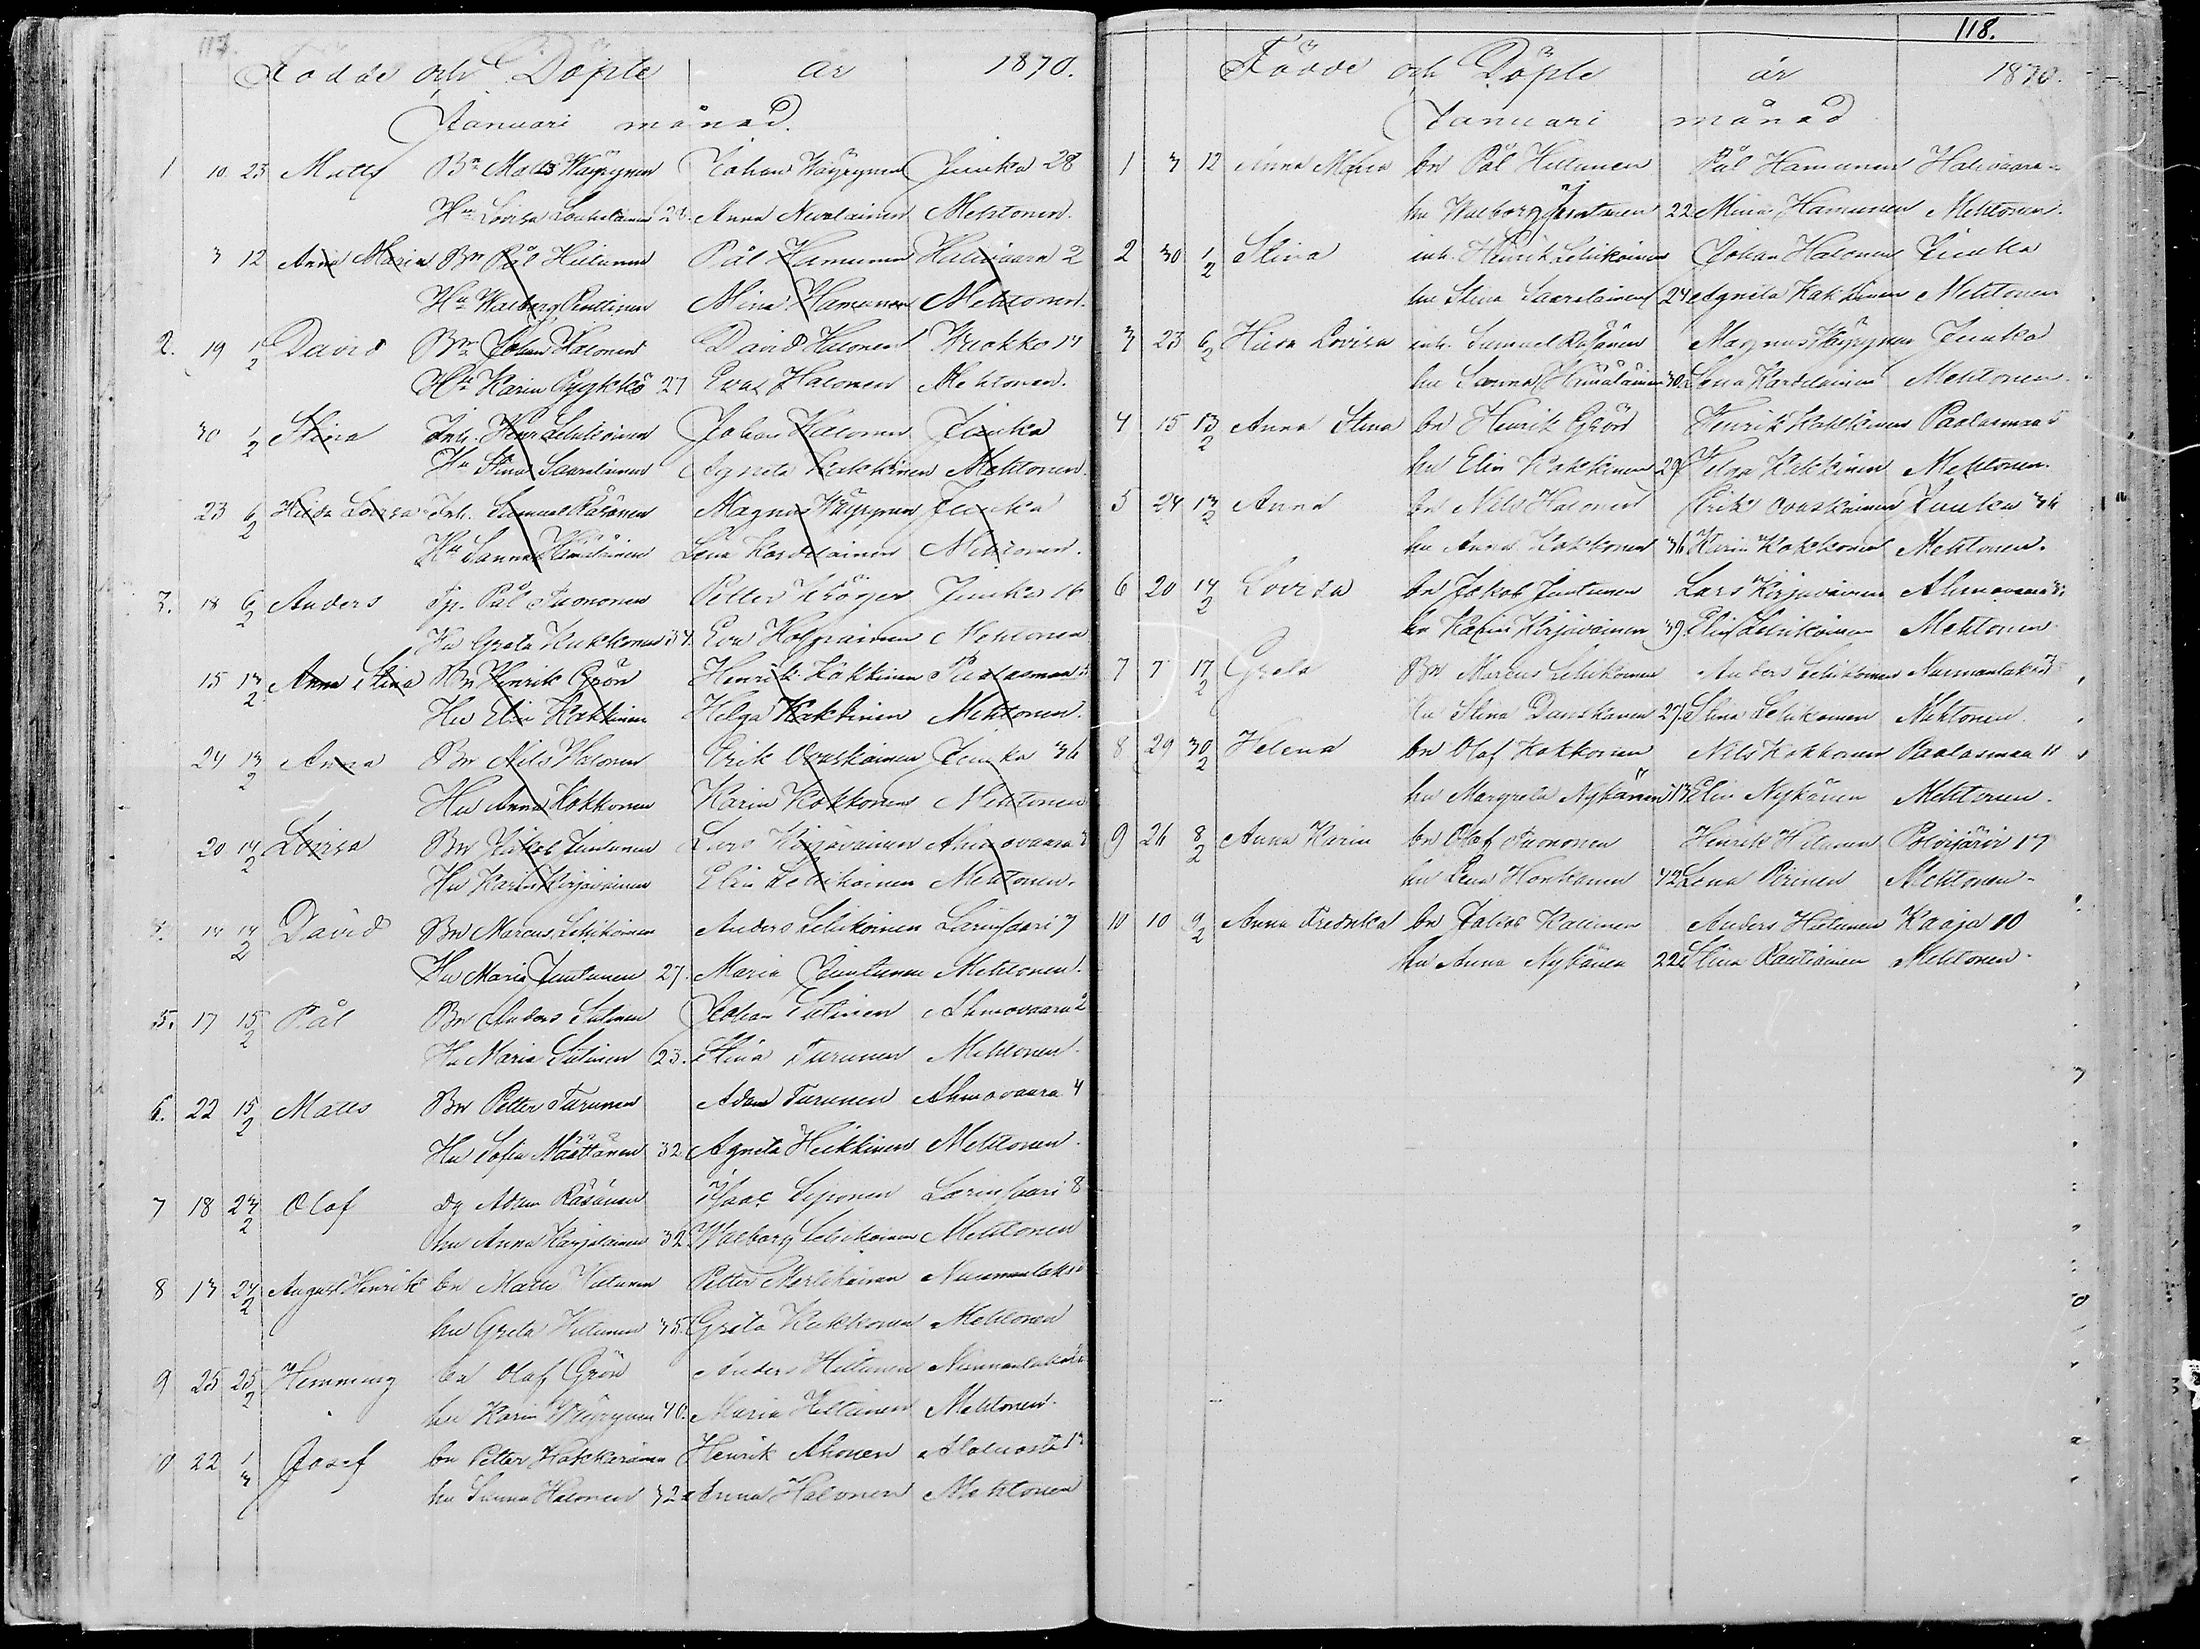 Födde och Döpte år 1870.
Januari månad.
1 10 23 Matts Bn Matts Wäyrynen Johan Wäyrynen Juuka 28
Hu Lovisa 26 Anna Nevalainen Mehtonen.
3 12 Anna Maria Bn Pål Hiltunen Pål Hamunen Halivaara 2
Hu Walborg Mina Hamunen Mehtonen.
2. 19 1/2 David Bn Johan Halonen David Halonen
Hu Karin Pyykkö 27 Eva Halonen Mehtonen.
30 1/2 Stina Inh. Henr Lehikoinen Johan Halonen Juuka
Hu Stina Saarelainen Agneta Kakkinen Mehtonen.
23 6/2 Hilda Lovisa Inh. Samuel Räsänen Magnus Wäyrynen Juuka
Hu Sanna Hämäläinen Lena Kardelainen Mehtonen.
3. 18 6/2 Anders Tp. Pål Tuononen Petter Kröger Juuka 16
Hu Greta Kukkonen 34. Eva Mehtonen
15 13/2 Anna Stina Bn Henrik Grön Henrik Kakkinen Paalasmaa 5
Hu Elin Kakkinen Helga Kakkinen Mehtonen.
24 13/2 Anna Bn Nils Halonen Erik Ovaskainen Juuka 36
Hu Anna Kokkonen Karin Kokkonen Mehtonen
20 14/2 Lovisa Bn Jakob Juntunen Lars Kirjavainen Ahmovaara 3
Hu Karin Kirjavainen Elin Lehikoinen Mehtonen.
4. 14 14/2 David Bn Marcus Lehikoinen Anders Lehikoinen Larinsaari 7
Hu Maria Juntunen 27. Maria Juntunen Mehtonen.
5. 17 15/2 Pål Bn Anders Sutinen Johan Sutinen Ahmovaara 2
Hu Maria Sutinen 23. Stina Turunen Mehtonen.
6. 22 15/2 Matts Bn Petter Turunen Adam Turunen Ahmovaara 4
Hu Sofia Määttänen 32. Agneta Heikkinen Mehtonen.
7 18 23/2 Olof Dg Adam Räsänen Isaac Siponen Larinsaari 8
hu Anna Karjalainen 32 Walborg Lehikoinen Mehtonen
8 13 24/2 August Henrik bn Matts Hiltunen Petter
hu Greta Hiltunen 35. Greta Kukkonen Mehtonen
9 25 25/2 Hemming bn Olof Grön Anders Hiltunen
hu Karin Wäyrynen 40. Maria Hiltunen Mehtonen.
10 22 1/3 Josef bn Petter Hakkarainen Henrik Ahonen
hu Sanna Halonen 32 Anna Halonen Mehtonen
118.
Födde och Döpte år 1870.
Januari månad
1 3 12 Anna Maria bn Pål Hiltunen Pål Hamunen Halivaara
hu Walborg 22 Mina Hamunen Mehtonen.
2 30 1/2 Stina inh. Henrik Lehikoinen Johan Halonen Juuka
hu Stina Saarelainen 24 Agneta Kakkinen Mehtonen
3 23 6/2 Hilda Lovisa inh. Samuel Räsänen Magnus Wäyrynen Juuka
hu Sanna Hämäläinen 30. Lena Kardelainen Mehtonen.
4 15 13/2 Anna Stina bn Henrik Grön Henrik Kakkinen Paalasmaa 5
hu Elin Kakkinen 29 Helga Kakkinen Mehtonen.
5 24 13/2 Anna bn Nils Halonen Erik Ovaskainen Juuka 36
hu Anna Kokkonen 36 Karin Kokkonen Mehtonen.
6 20 14/2 Lovisa bn Jakob Juntunen Lars Kirjavainen Ahmovaara 3
hu Karin Kirjavainen 39 Elin Lehikoinen Mehtonen
7 7 17/2 Greta Bn Marcus Lehikoinen Anders Lehikoinen
hu Stina Danskanen 27. Stina Lehikoinen Mehtonen.
8 29 30/2 Helena bn Olof Kokkonen Nils Kokkonen Paalasmaa 11
hu Margreta Nykänen Elin Nykänen Mehtonen.
9 26 8/2 Anna Karin bn Olof Tuononen Henrik Hiltunen Polvijärvi 17
hu Lena Honkanen 42 Lena Pirinen Mehtonen.
10 10 9/2 Anna Fredrika bn Jakob Kalinen Anders Hiltunen Kaaja 10
hu Anna Nykänen 22 Stina Rautiainen Mehtonen.